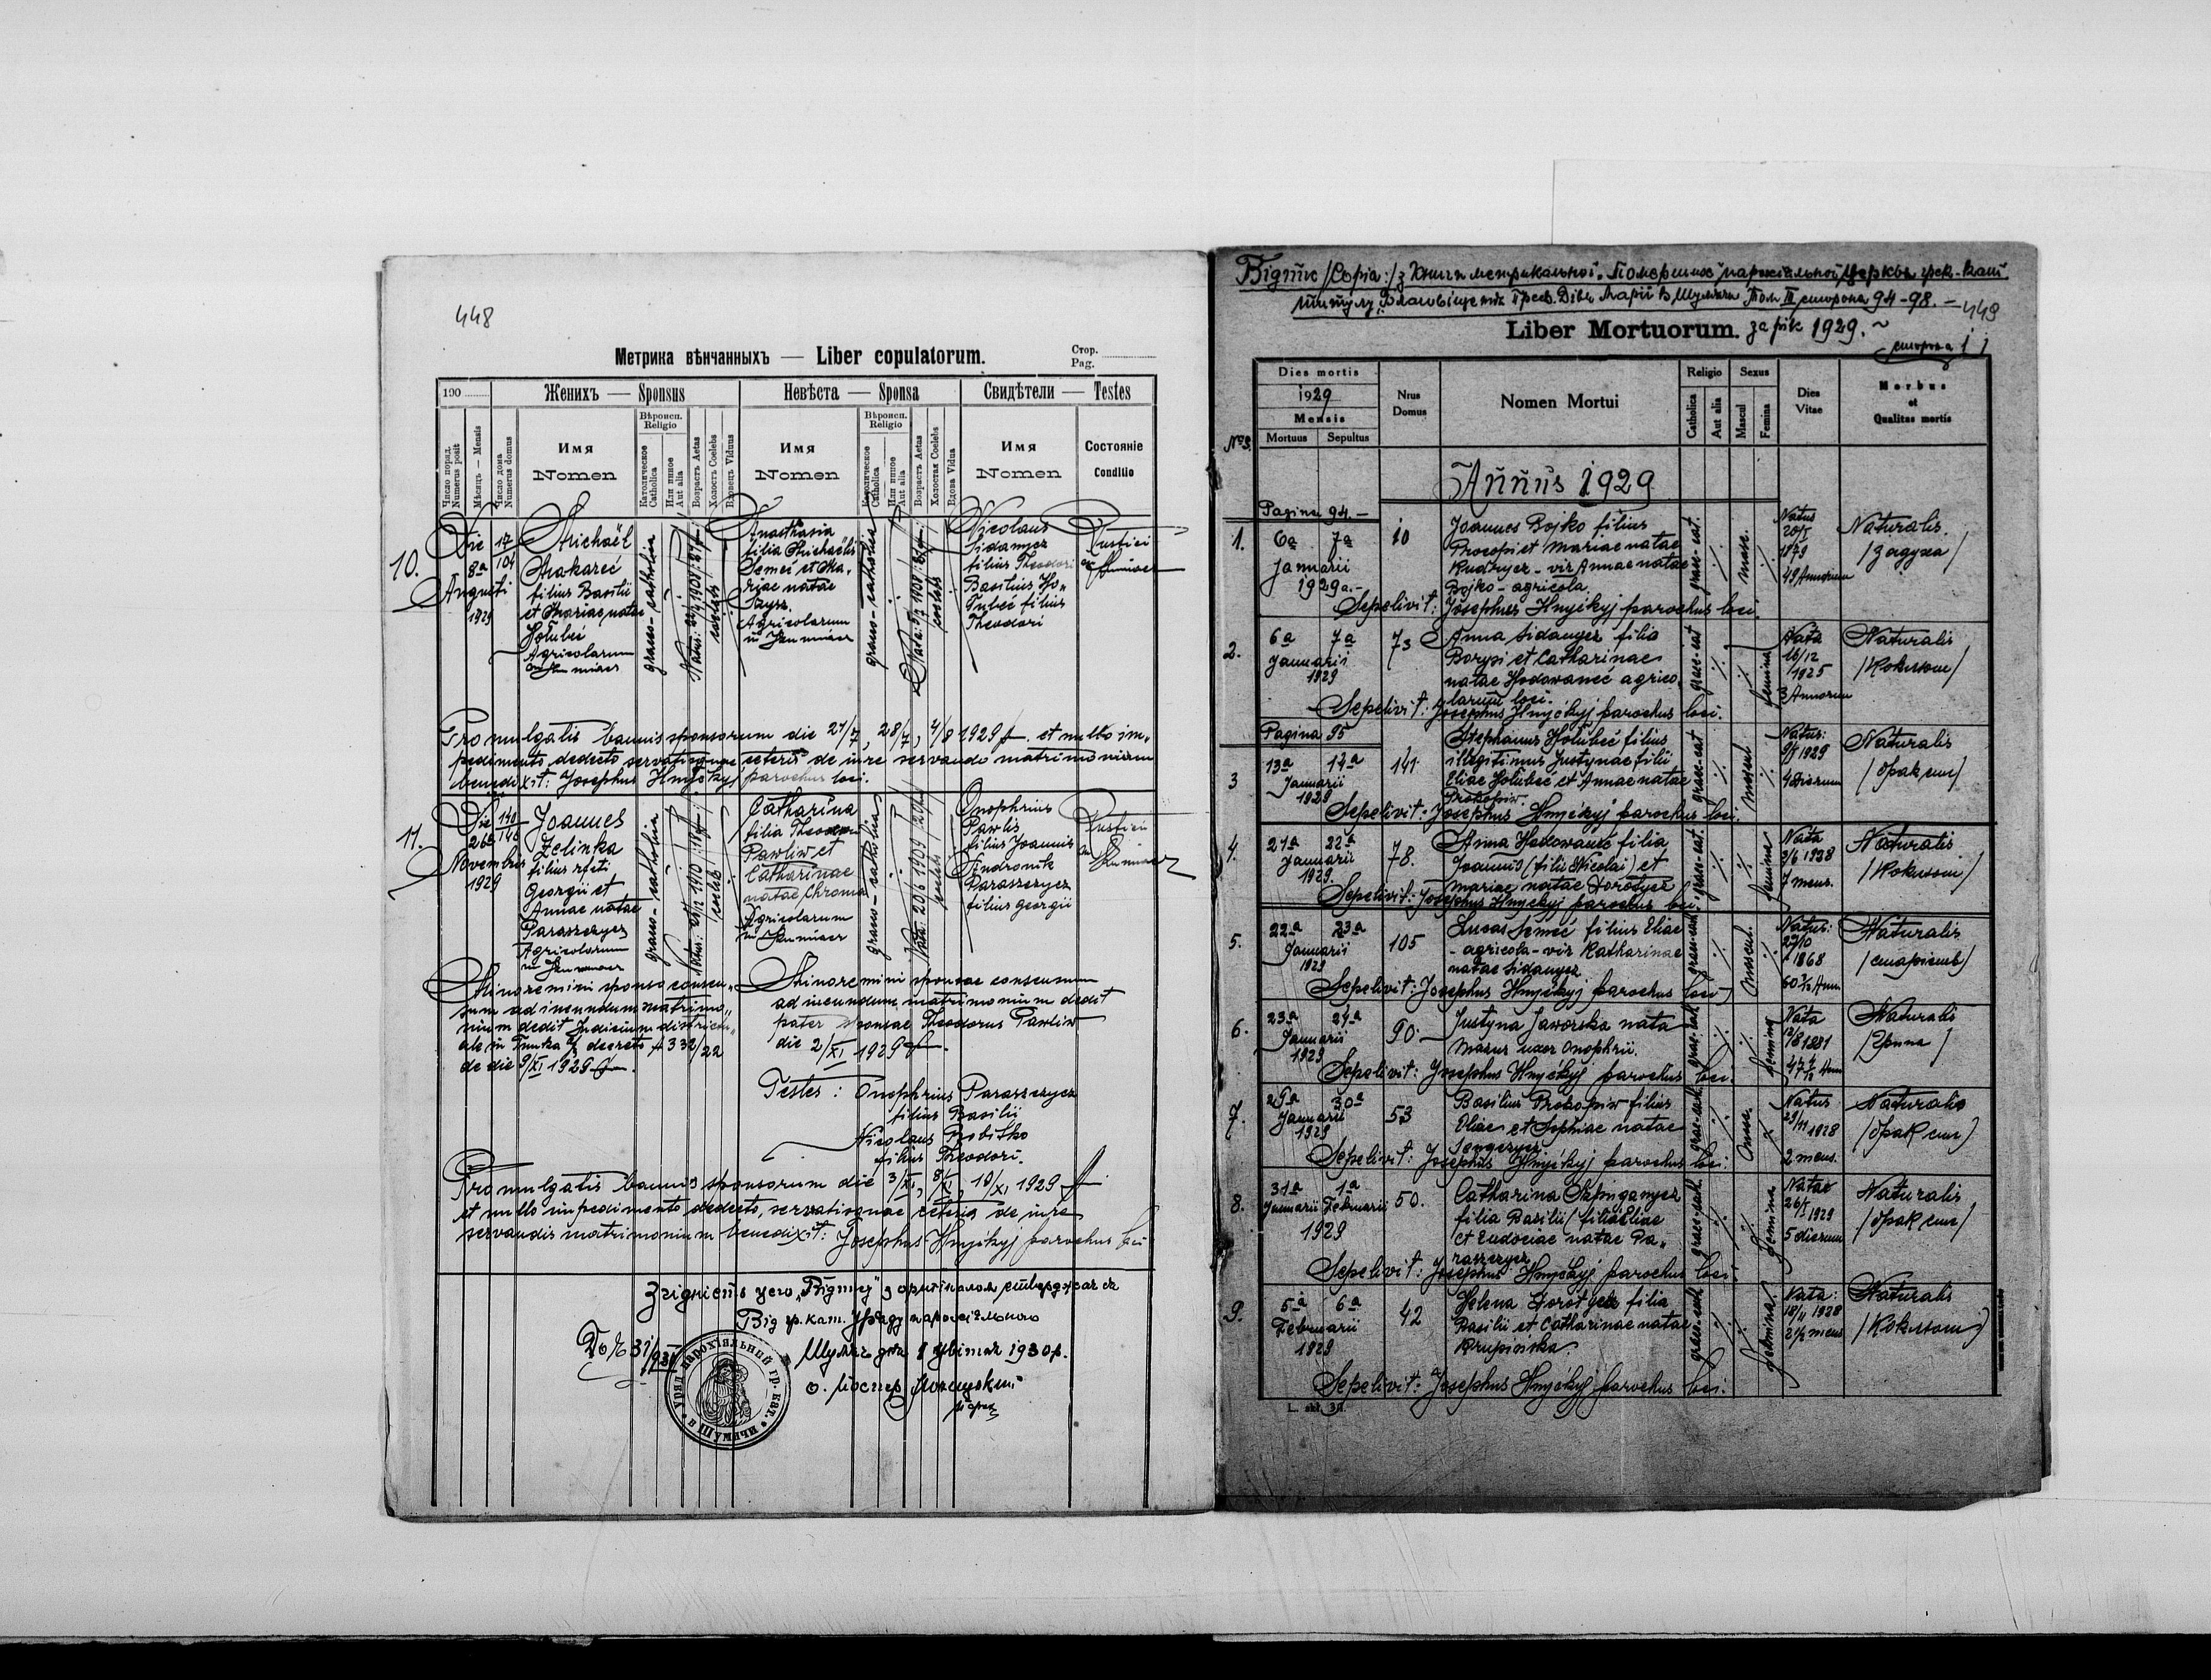 448
Метрика вѣнчанныхъ — Liber copulatorum.
Стор.
Pag.
190
Женихъ — Sponsus
Невѣста — Sponsa
Свидѣтели — Testes
Число поряд. Numerus posit
Мѣсяцъ — Mensis
Число дома Numerus domus
Имя
Nomen
Вѣроисп.
Religio
Католическое Catholica
Или инное Aut alia
Возрастъ Aetas
Холостъ Coelebs
Вдовецъ Viduus
Имя
Nomen
Вѣроисп.
Religio
Католическое Catholica
Или инное Aut alia
Возрастъ Aetas
Холостая Coelebs
Вдова Vidua
Имя
Nomen
Состояніе
Conditio
10.
Die
8a
Augusti
1929
17
104
Michaël
Makareć
filius Basilii
et Mariae natae
Holubec
Agricolarum
graeco-catholica
coelebs
Anasthasia
filia Michaëlis
Semeć et Ma-
riae natae
Agricolarum
in Szumiacz
graeco-catholica
coelebs
Nicolaus
Sidanycz
filius Theodori
Basilius Ho-
lubeć filius
Theodori
Rustici
Promulgatis bannis sponsorum die 21/7, 28/7, 4/8 1929 et nullo im-
pedimento dedecto servatisque ceteris de iure servando matrimonium
benedixit: Josephus Hnyćkyj parochus loci.
11.
Die
26a
Novembris
1929
140
146
Joannes
Zelinka
filius
Georgii et
Annae natae
Paraszczycz
Agricolarum
graeco-catholica
coelebs
Catharina
filia Theodori
Pawliw et
Catharinae
natae Chroma
Agricolarum
in Szumiacz
graeco-catholica
Nata: 20/6 1909
coelebs
Onophrius
Pawlis
filius Joannis
Andronik
Paraszczycz
filius Georgii
Rustici
Minorenni sponso consen-
sum ad ineundum matrimo-
nium dedit Judicium districtu-
ale in Turka decreto 332/22
de die 9/XI 1929.
Minorenni sponsae consensum
ad ineundum matrimonium dedit
pater sponsae Theodorus Pawliw
die 2/XI 1929.
Testes: Onophrius Paraszczycz
filius Basilii
Nicolaus
filius Theodori.
Promulgatis bannis sponsorum die 3/XI, 8/XI, 10/XI 1929
et nullo impedimento dedecto, servatisque ceteris de iure
servandis matrimonium benedixit: Josephus Hnyćkyj parochus loci
Згідність цего „Відпису" з оригіналом стверджаєся
Від гр. кат. Уряду парохіяльного
Шумяч дня 1 цвітня 1930 р.
Уряд парохіяльний гр. кат. в Шумячи
Відпис /Copia:/ з Книги метрикальної „Померших" парохіяльної церкви грек-кат
титулу „Благовіщення Пресв. Діви Марії в Шумячи Том III сторона 94-98. —
449
Liber Mortuorum. за рік 1929.
сторона 1
No s.
Dies mortis
1929
Mensis
Mortuus
Sepultus
Nrus
Domus
Nomen Mortui
Religio
Catholica
Aut alia
Sexus
Mascul
Femina
Dies
Vitae
Morbus
et
Qualitas mortis
Annus 1929
Pagina 94.—
1.
6a 7a
Januarii
1929 a.-
10
Joannes Bojko filius
Procopi et Mariae natae
Kudrycz - vir Annae natae
Bojko - agricola.
graec-cat.
masc.
Natus
20/I
1879
49 Annorum
Naturalis.
/задуха/
Sepelivit: Josephus Hnyćkyj parochus loci
2.
6a 7a
Januarii
1929
73
Anna Sidanycz filia
Borysi et Catharinae
natae Hodowaneć agrico-
larum loci.
graec-cat
femina
Nata
16/12
1925
3 Annorum
Naturalis
/Коклюш/
Sepelivit: Josephus Hnyćkyj parochus loci.
Pagina 95
3
13a 14a
Januarii
1929
141
Stephanus Holubeć filius
illegitimus Justynae filii
Eliae Holubeć et Annae natae
Prokopiw.
graec-cat
mascul
Natus:
9/I 1929
4 dierum
Naturalis
/брак сил/
Sepelivit: Josephus Hnyćkyj parochus loci.
4.
21a 22a
Januarii
1929.
78.
Anna Hodowaneć filia
Joannis (filii Nicolai) et
Mariae natae Dorotycz
graec-cat.
femina
Nata
3/6 1928
7 mens.
Naturalis
/Коклюш/
Sepelivit: Josephus Hnyćkyj parochus loci.
5.
22a 23a
Januarii
1929
105
Lucas Semeć filius Eliae
- agricola - vir Katharinae
natae Sidanycz
graec-cat.
mascul.
Natus:
29/10
1868
Naturalis
/старість/
Sepelivit: Josephus Hnyćkyj parochus loci
6.
23a 24a
Januarii
1929
90.
Justyna Jaworska nata
Mazur uxor Onophrii.
graec-cat
femina
Nata
12/8 1881
Naturalis
/Грипа/
Sepelivit: Josephus Hnyćkyj parochus loci.
7.
29a 30a
Januarii
1929
53
Basilius Prokopiw filius
Eliae et Sophiae natae
graec-cat.
Natus
29/11 1928
2 mens.
Naturalis
/брак сил/
Sepelivit: Josephus Hnyćkyj parochus loci.
8.
31a 1a
Januarii Februarii
1929
50.
Catharina
filia Basilii / filii Eliae
et Eudociae natae Pa-
raszczycz
graec-cat.
femina
Natae
26/I 1929
5 dierum
Naturalis
/брак сил/
Sepelivit: Josephus Hnyćkyj parochus loci
9.
5a 6a
Februarii
1929
42
Helena Dorotycz filia
Basilii et Catharinae natae
Krupińska.
graec-cat.
femina.
Nata:
18/11 1928
2 1/2 mens
Naturalis
/Коклюш/
Sepelivit: Josephus Hnyćkyj parochus loci.